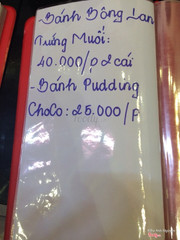 - Bánh Bông Lan
Trứng Muối:
40.000/p 2 cái
- Bánh Pudding
CHoCo: 25.000/p